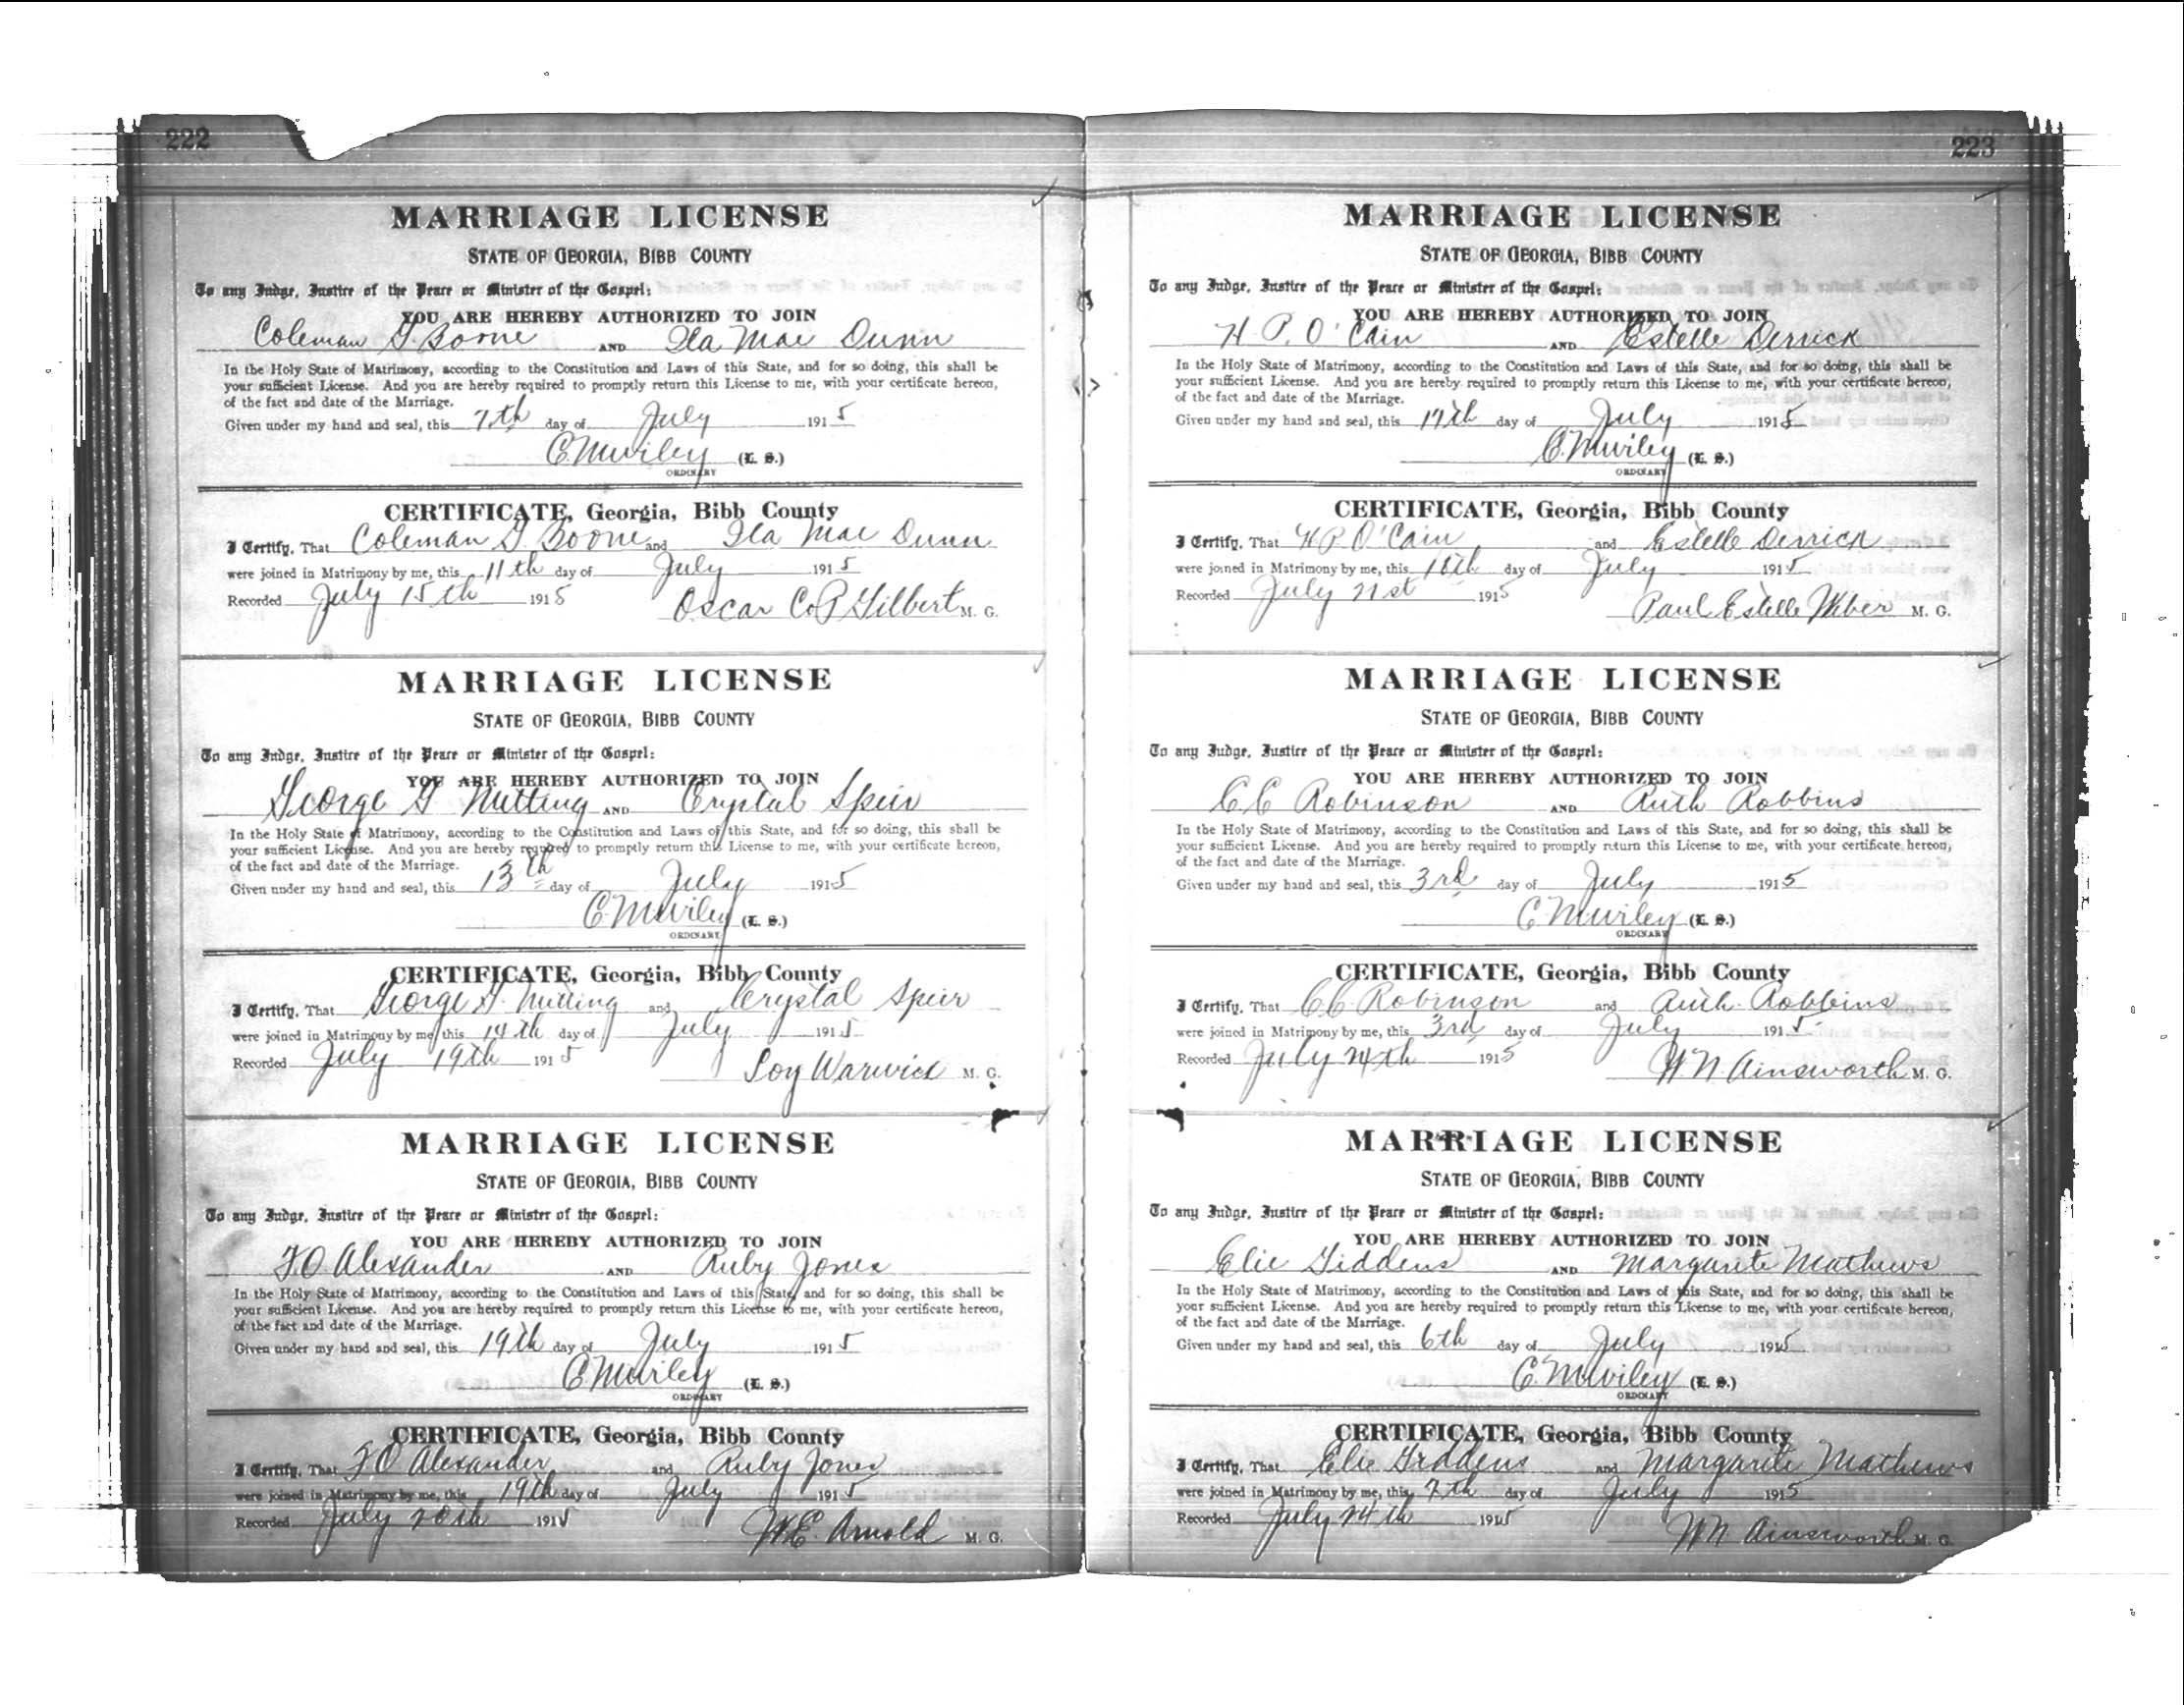 222
MARRIAGE LICENSE
STATE OF GEORGIA, BIBB COUNTY
To any Judge, Justice of the Peace or Minister of the Gospel:
YOU ARE HEREBY AUTHORIZED TO JOIN
Coleman G. Boone AND Ila Mae Dunn
In the Holy State of Matrimony, according to the Constitution and Laws of this State, and for so doing, this shall be
your sufficient License. And you are hereby required to promptly return this License to me, with your certificate hereon,
of the fact and date of the Marriage.
Given under my hand and seal, this 7th day of July 1915
C. M. Wiley (L. S.)
ORDINARY
CERTIFICATE, Georgia, Bibb County
I Certify, That Coleman G Boone and Ila Mae Dunn
were joined in Matrimony by me, this 11th day of July 1915
Recorded July 15th 1915 Oscar C. P. Gilbert M. G.
MARRIAGE LICENSE
STATE OF GEORGIA, BIBB COUNTY
To any Judge, Justice of the Peace or Minister of the Gospel:
YOU ARE HEREBY AUTHORIZED TO JOIN
George G Nutting AND Crystal Speir
In the Holy State of Matrimony, according to the Constitution and Laws of this State, and for so doing, this shall be
your sufficient License. And you are hereby required to promptly return this License to me, with your certificate hereon,
of the fact and date of the Marriage.
Given under my hand and seal, this 13th day of July 1915
C. M. Wiley (L. S.)
ORDINARY
CERTIFICATE, Georgia, Bibb County
I Certify, That George G. Nutting and Crystal Speir
were joined in Matrimony by me, this 14th day of July 1915
Recorded July 19th 1915 Loy Warwick M. G.
MARRIAGE LICENSE
STATE OF GEORGIA, BIBB COUNTY
To any Judge, Justice of the Peace or Minister of the Gospel:
YOU ARE HEREBY AUTHORIZED TO JOIN
F. O Alexander AND Ruby Jones
In the Holy State of Matrimony, according to the Constitution and Laws of this State, and for so doing, this shall be
your sufficient License. And you are hereby required to promptly return this License to me, with your certificate hereon,
of the fact and date of the Marriage.
Given under my hand and seal, this 19th day of July 1915
C. M. Wiley (L. S.)
ORDINARY
CERTIFICATE, Georgia, Bibb County
I Certify, That F O Alexander and Ruby Jones
were joined in Matrimony by me, this 19th day of July 1915
Recorded July 20th 1915 W. E. Arnold M. G.
223
MARRIAGE LICENSE
STATE OF GEORGIA, BIBB COUNTY
To any Judge, Justice of the Peace or Minister of the Gospel:
YOU ARE HEREBY AUTHORIZED TO JOIN
H P. O'Cain AND Estelle Derrick
In the Holy State of Matrimony, according to the Constitution and Laws of this State, and for so doing, this shall be
your sufficient License. And you are hereby required to promptly return this License to me, with your certificate hereon,
of the fact and date of the Marriage.
Given under my hand and seal, this 17th day of July 1915
C. M. Wiley (L. S.)
ORDINARY
CERTIFICATE, Georgia, Bibb County
I Certify, That H P. O'Cain and Estelle Derrick
were joined in Matrimony by me, this 18th day of July 1915
Recorded July 21st 1915 Paul Estelle Weber M. G.
MARRIAGE LICENSE
STATE OF GEORGIA, BIBB COUNTY
To any Judge, Justice of the Peace or Minister of the Gospel:
YOU ARE HEREBY AUTHORIZED TO JOIN
C C Robinson AND Ruth Robbins
In the Holy State of Matrimony, according to the Constitution and Laws of this State, and for so doing, this shall be
your sufficient License. And you are hereby required to promptly return this License to me, with your certificate hereon,
of the fact and date of the Marriage.
Given under my hand and seal, this 3rd day of July 1915
C. M. Wiley (L. S.)
ORDINARY
CERTIFICATE, Georgia, Bibb County
I Certify, That C C Robinson and Ruth Robbins
were joined in Matrimony by me, this 3rd day of July 1915
Recorded July 24th 1915 W. N Ainsworth M. G.
MARRIAGE LICENSE
STATE OF GEORGIA, BIBB COUNTY
To any Judge, Justice of the Peace or Minister of the Gospel:
YOU ARE HEREBY AUTHORIZED TO JOIN
Elie Giddens AND Margarite Mathews
In the Holy State of Matrimony, according to the Constitution and Laws of this State, and for so doing, this shall be
your sufficient License. And you are hereby required to promptly return this License to me, with your certificate hereon,
of the fact and date of the Marriage.
Given under my hand and seal, this 6th day of July 1915
C. M. Wiley (L. S.)
ORDINARY
CERTIFICATE, Georgia, Bibb County
I Certify, That Elie Giddens and Margarite Mathews
were joined in Matrimony by me, this 7th day of July 1915
Recorded July 24th 1915 W N Ainsworth M. G.